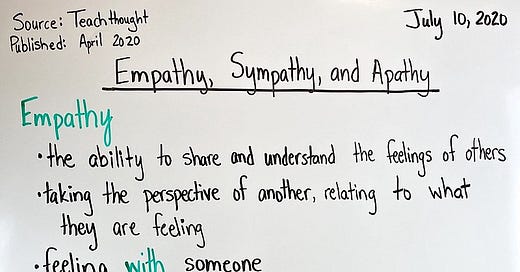 Source: Teachthought
July 10, 2020
Published: April 2020
Empathy, Sympathy, and Apathy
Empathy
•the ability to share and understand the feelings of others
•taking the perspective of another, relating to what
they are feeling
•feeling with someone